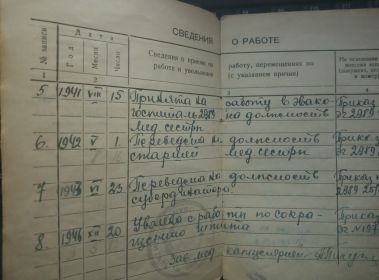 СВЕДЕНИЯ О РАБОТЕ
№ записи
Дата
Год
Месяц
Число
Сведения о приеме на работу, перемещениях по
работе и увольнении (с указанием причин)
На основании
1 2 3 4
5 1941 VIII 15 Принята на работу в эвако- Приказ
госпиталь 2989 на должность № 2989
мед. сестры
6. 1942 V 1. Переведена на должность Приказ
старшей мед. сестры № 2989
7 1943 VI 23 Переведена на должность Приказ
субординатора 2989
8. 1946 XII 20 Уволена с работы по сокра- Приказ
щению штата
Зав. мед. канцелярией